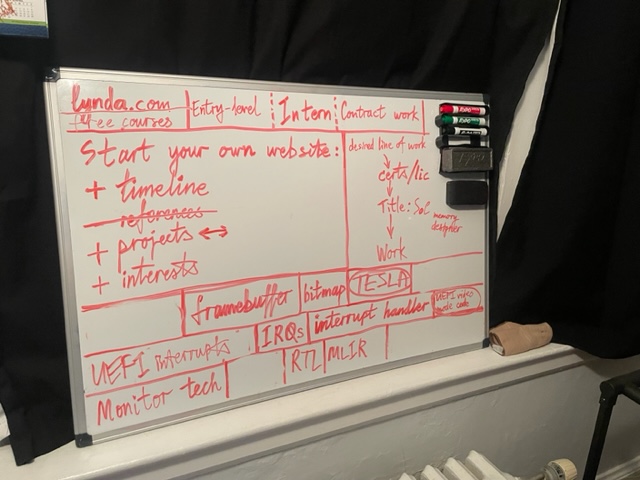 lynda.com
free courses
Entry-level
Intern
Contract work
Start your own website:
+ timeline
references
+ projects ↔
+ interests
desired line of work
↓
certs/lic
↓
Title: SoC memory designer
↓
Work
framebuffer
bitmap
TESLA
IRQs
interrupt handler
UEFI video mode code
UEFI interrupts
RTL
MLIR
Monitor tech
EXPO
EXPO
EXPO